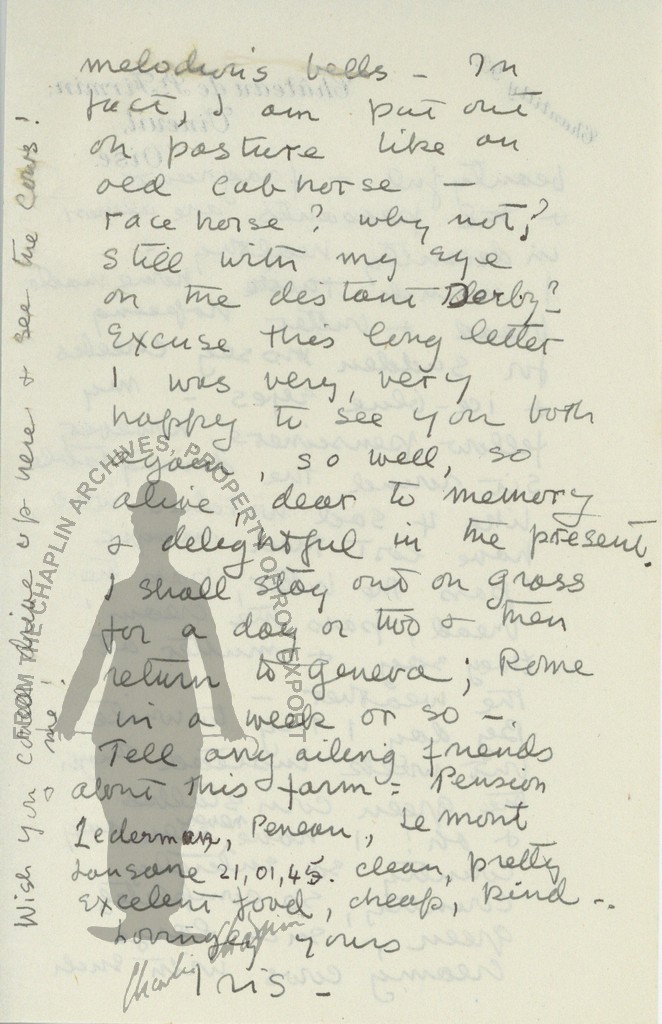 melodious bells – In
fact, I am put out
on pasture like an
old cab horse –
race horse? why not?
still with my eye
on the distant Derby?
Excuse this long letter
I was very, very
happy to see you both
again, so well, so
alive, dear to memory
& delightful in the present.
I shall stay out on grass
for a day or two & then
return to Geneva; Rome
in a week or so –.
Tell any ailing friends
about this farm = Pension
Lederman, Peneau, Le Mont
Lausane 21,01,45. clean, pretty
excelent food, cheap, kind –.
Lovingly yours
Iris –
Wish you could drive up here & see the cows!
& me!
FROM THE CHAPLIN ARCHIVES, PROPERTY OF ROY EXPORT
Charlie Chaplin